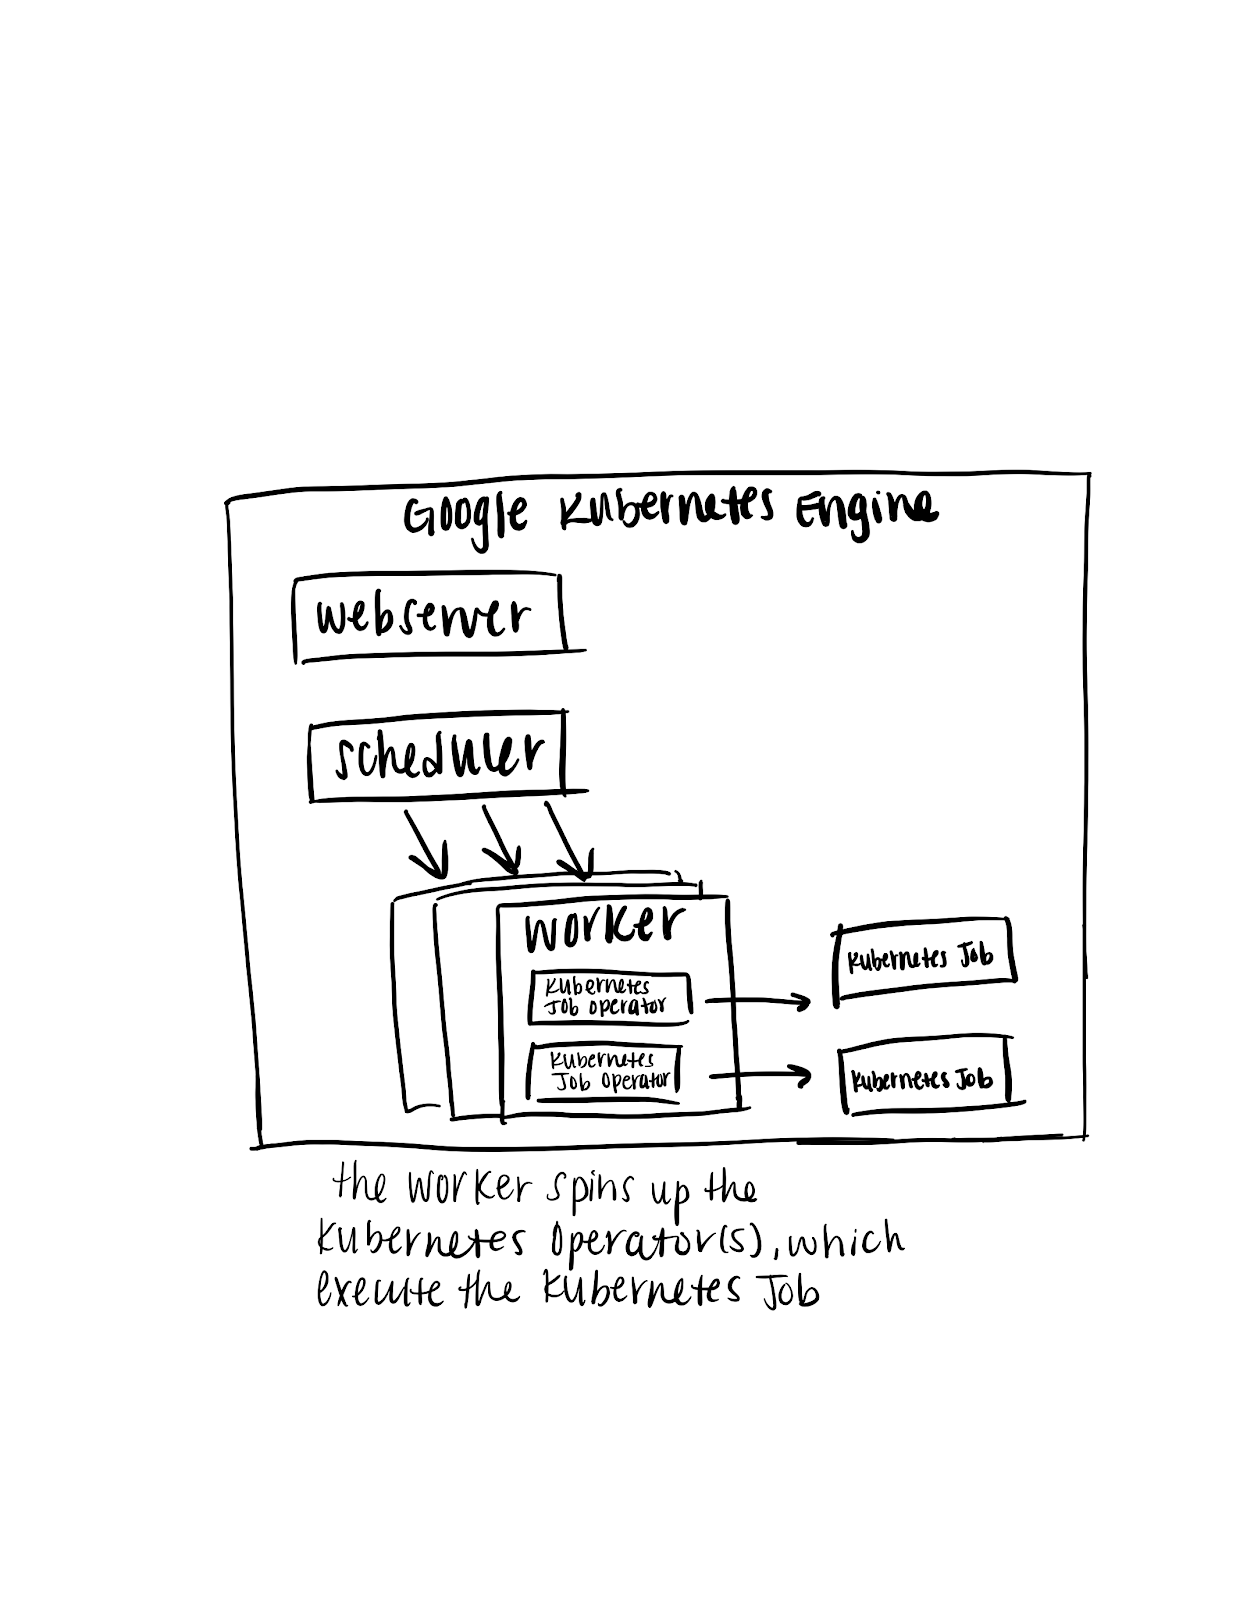 Google Kubernetes Engine
webserver
scheduler
worker
Kubernetes
Job Operator
Kubernetes
Job Operator
Kubernetes Job
Kubernetes Job
the worker spins up the
Kubernetes Operator(s), which
execute the Kubernetes Job